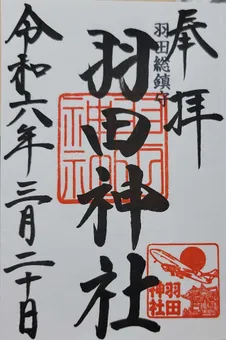 奉拝
羽田総鎮守
羽田神社
羽田
神社
令和六年三月二十日
羽田
神社